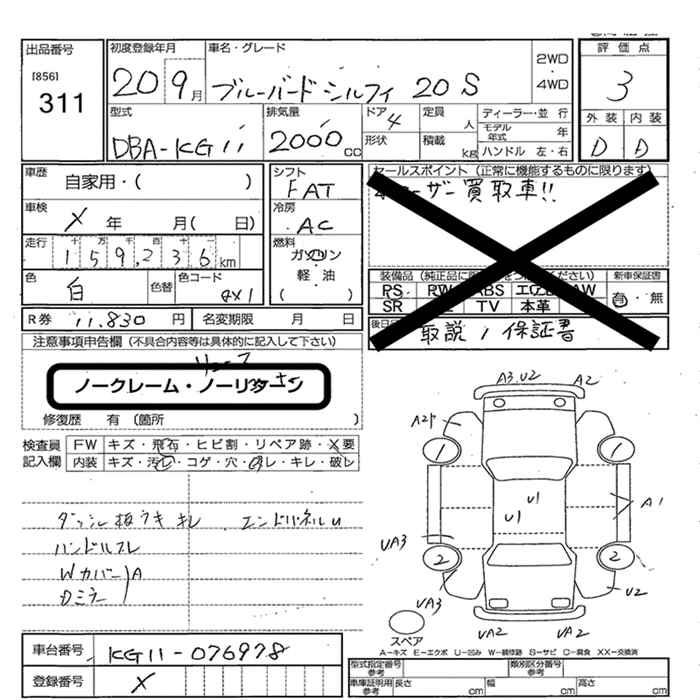 出品番号
[856]
311
初度登録年月
20 9月
車名・グレード
ブルーバードシルフィ 20S
2WD
・
4WD
評価点
3
外装 内装
D D
型式
DBA-KG11
排気量
2000cc
ドア
4
形状
定員
人
積載
kg
ディーラー・並 行
モデル年式 年
ハンドル 左・右
車歴
自家用・( )
車検
X 年 月( 日)
走行
十 万 千 百 十
159,236km
色
白
色替
色コード
QX1
シフト
FAT
冷房
AC
燃料
ガソリン
軽・油
( )
セールスポイント (正常に機能するものに限ります)
ーザー買取車!!
装備品(純正品に ください)
PS ABS AW
SR TV 本革
新車保証書
有・無
後日
取説 / 保証書
R券 11.830円
名変期限 月 日
注意事項申告欄(不具合内容等は具体的に記入して下さい)
ノークレーム・ノーリターン
修復歴 有 〔箇所 〕
検査員
記入欄
FW キズ・飛石・ヒビ割・リペア跡・X要
内装 キズ・汚レ・コゲ・穴・スレ・キレ・破レ
ダッシュ板ウキ キレ エンドパネルU
ハンドルスレ
Wカバー A
Dミラー
車台番号
KG11-076978
登録番号
X
A3.U2 A2
A2
1 1
U1
U1
A1
UA3
2 2
U2
UA3
UA2 UA2
スペア
A−キズ E−エクボ U−凹み W−補修跡 S−サビ C−腐食 XX−交換済
型式指定番号
参考
類別区分番号
参考
車庫証明用
参考
長さ cm
幅 cm
高さ cm